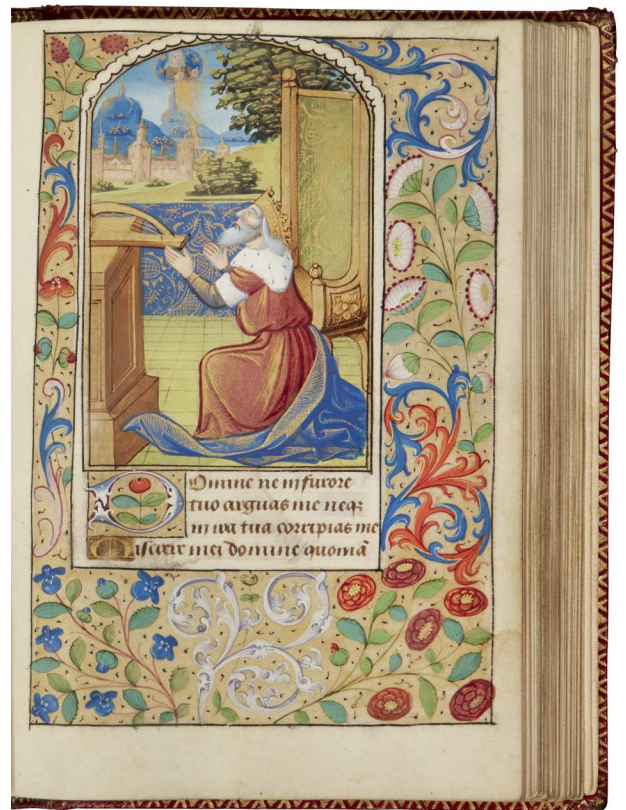 Domine ne in furore
tuo arguas me neqz
in ira tua corripias me
Miserere mei domine quoniā